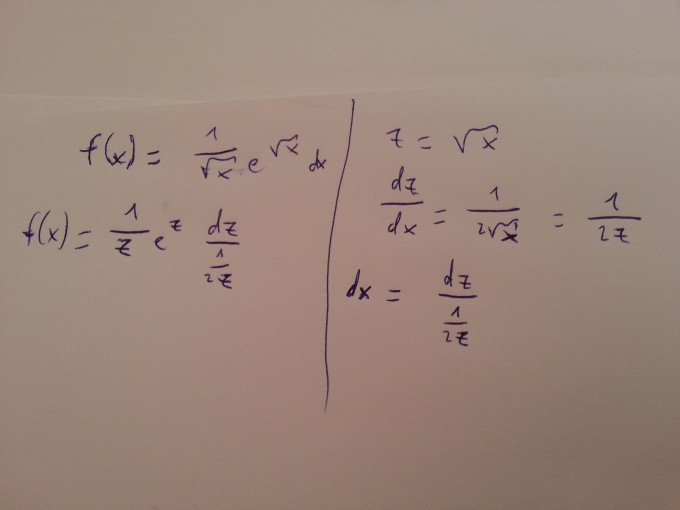 f(x) = 1/√x e^√x dx
f(x) = 1/z e^z dz/(1/2z)
z = √x
dz/dx = 1/2√x = 1/2z
dx = dz/(1/2z)